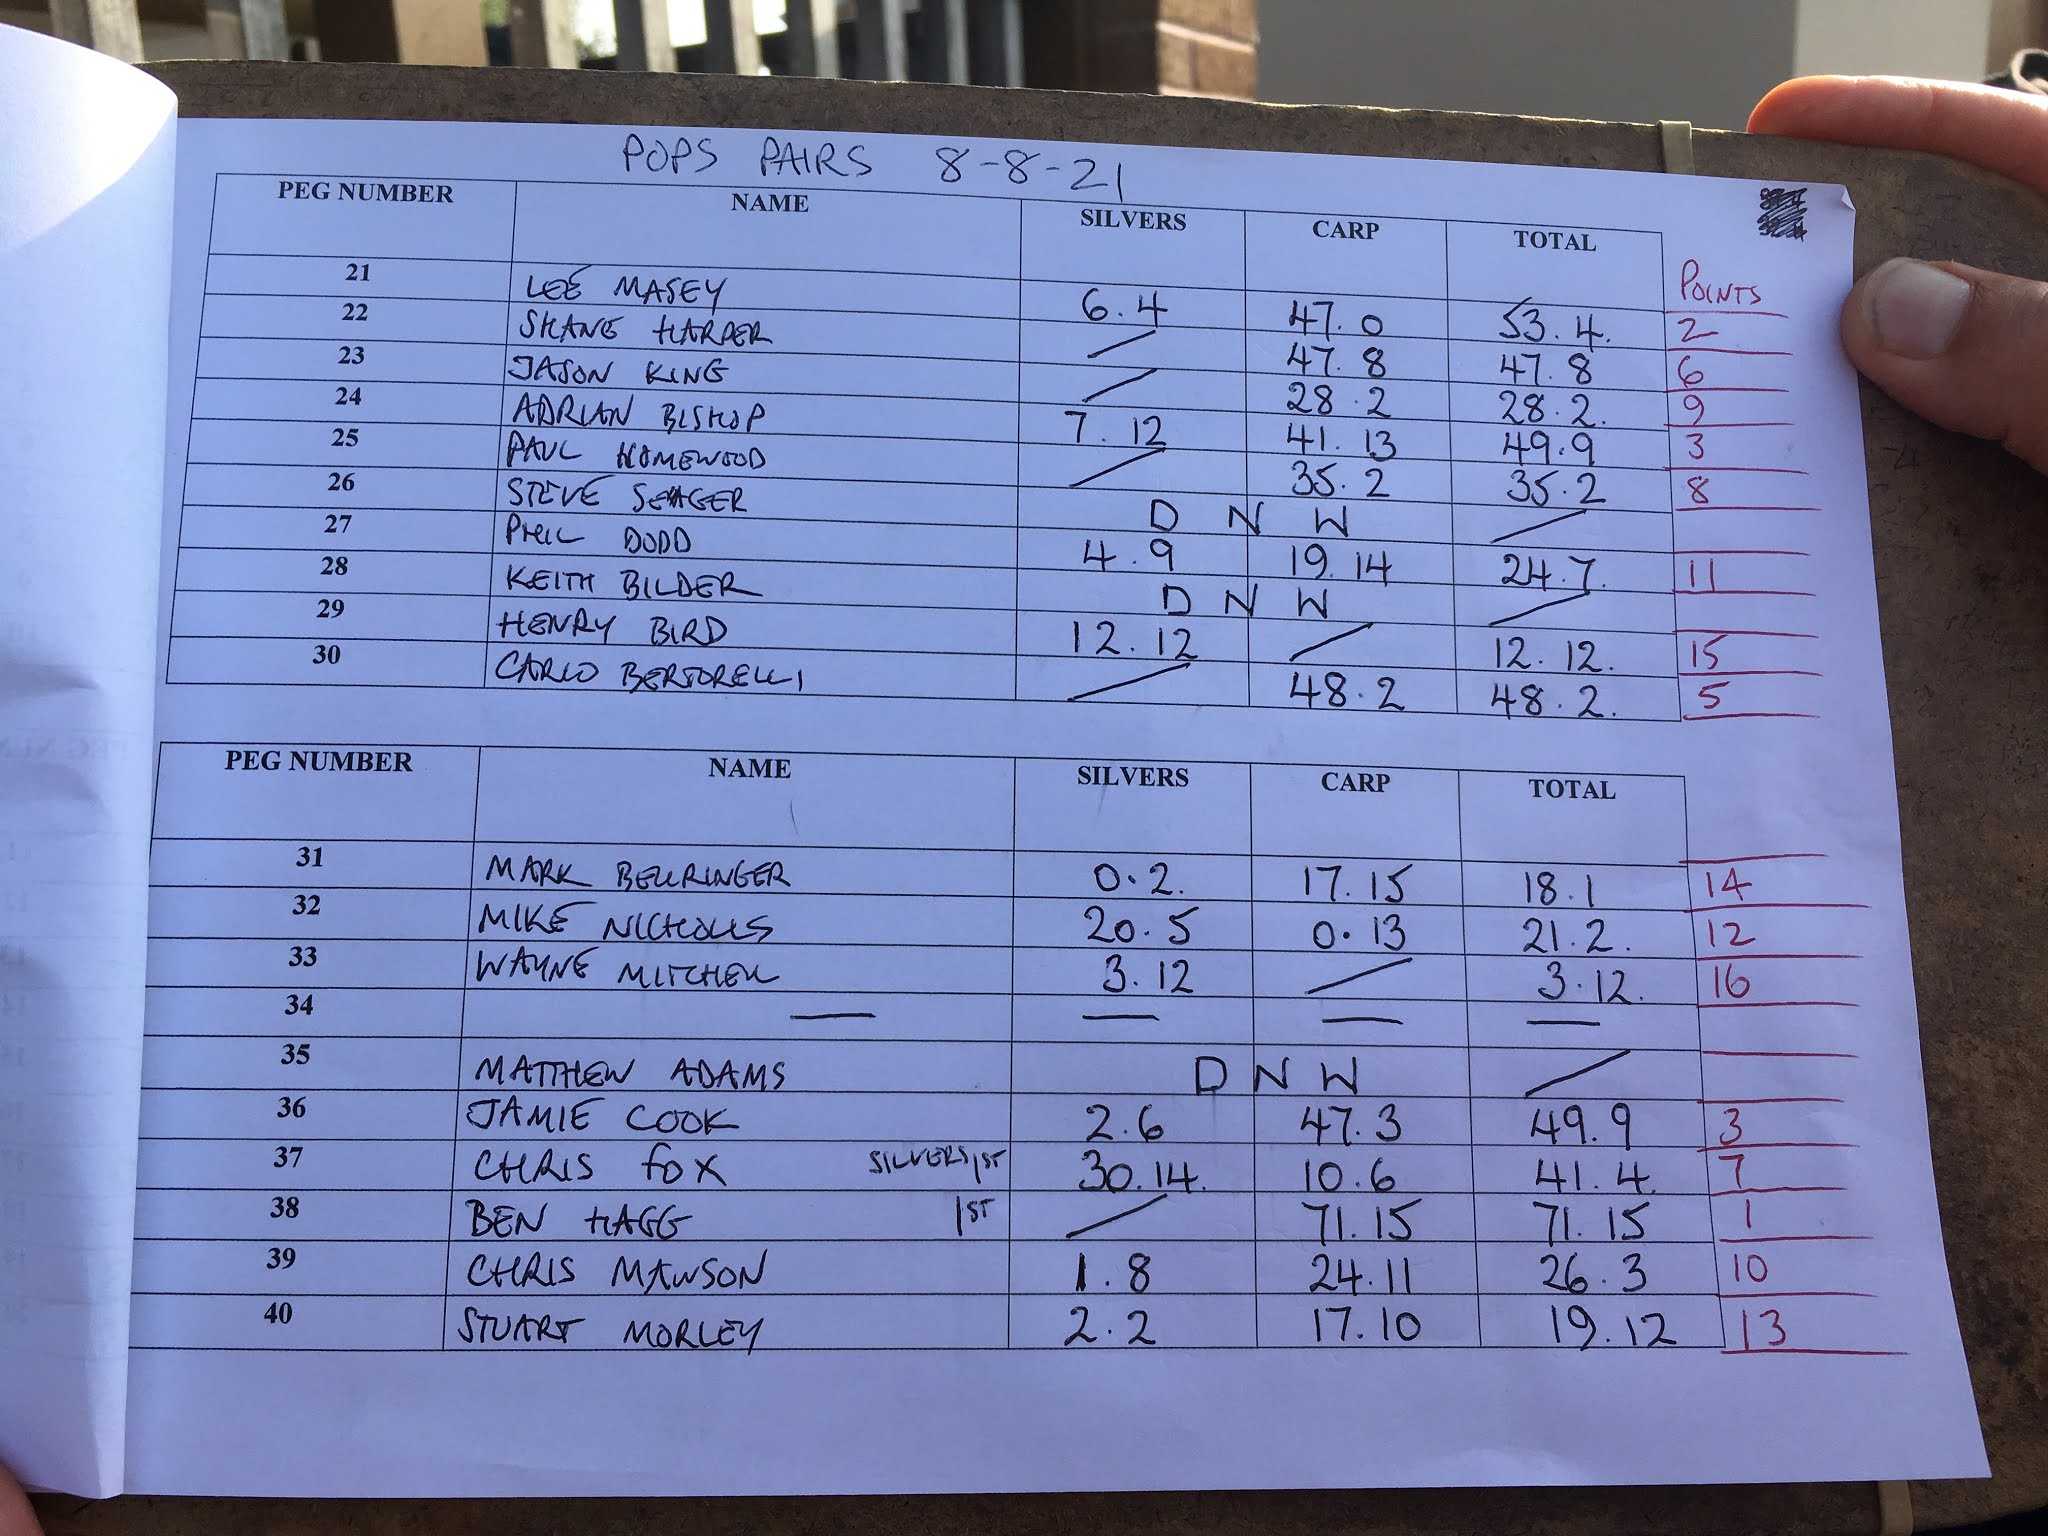 POPS PAIRS 8-8-21
PEG NUMBER NAME SILVERS CARP TOTAL POINTS
21 LEE MASEY 6.4 47.0 53.4. 2
22 SHANE HARPER / 47.8 47.8 6
23 JASON KING / 28.2 28.2. 9
24 ADRIAN BISHOP 7.12 41.13 49.9 3
25 PAUL HOMEWOOD / 35.2 35.2 8
26 STEVE SEAGER D N W /
27 PHIL DODD 4.9 19.14 24.7. 11
28 KEITH BILDER D N W /
29 HENRY BIRD 12.12 / 12.12. 15
30 CARLO BERTORELLI / 48.2 48.2. 5
PEG NUMBER NAME SILVERS CARP TOTAL
31 MARK BELLRINGER 0.2. 17.15 18.1 14
32 MIKE NICHOLLS 20.5 0.13 21.2. 12
33 WAYNE MITCHELL 3.12 / 3.12. 16
34 — — — —
35 MATTHEW ADAMS D N W /
36 JAMIE COOK 2.6 47.3 49.9 3
37 CHRIS FOX SILVERS 1ST 30.14. 10.6 41.4. 7
38 BEN HAGG 1ST / 71.15 71.15 1
39 CHRIS MAWSON 1.8 24.11 26.3 10
40 STUART MORLEY 2.2 17.10 19.12 13